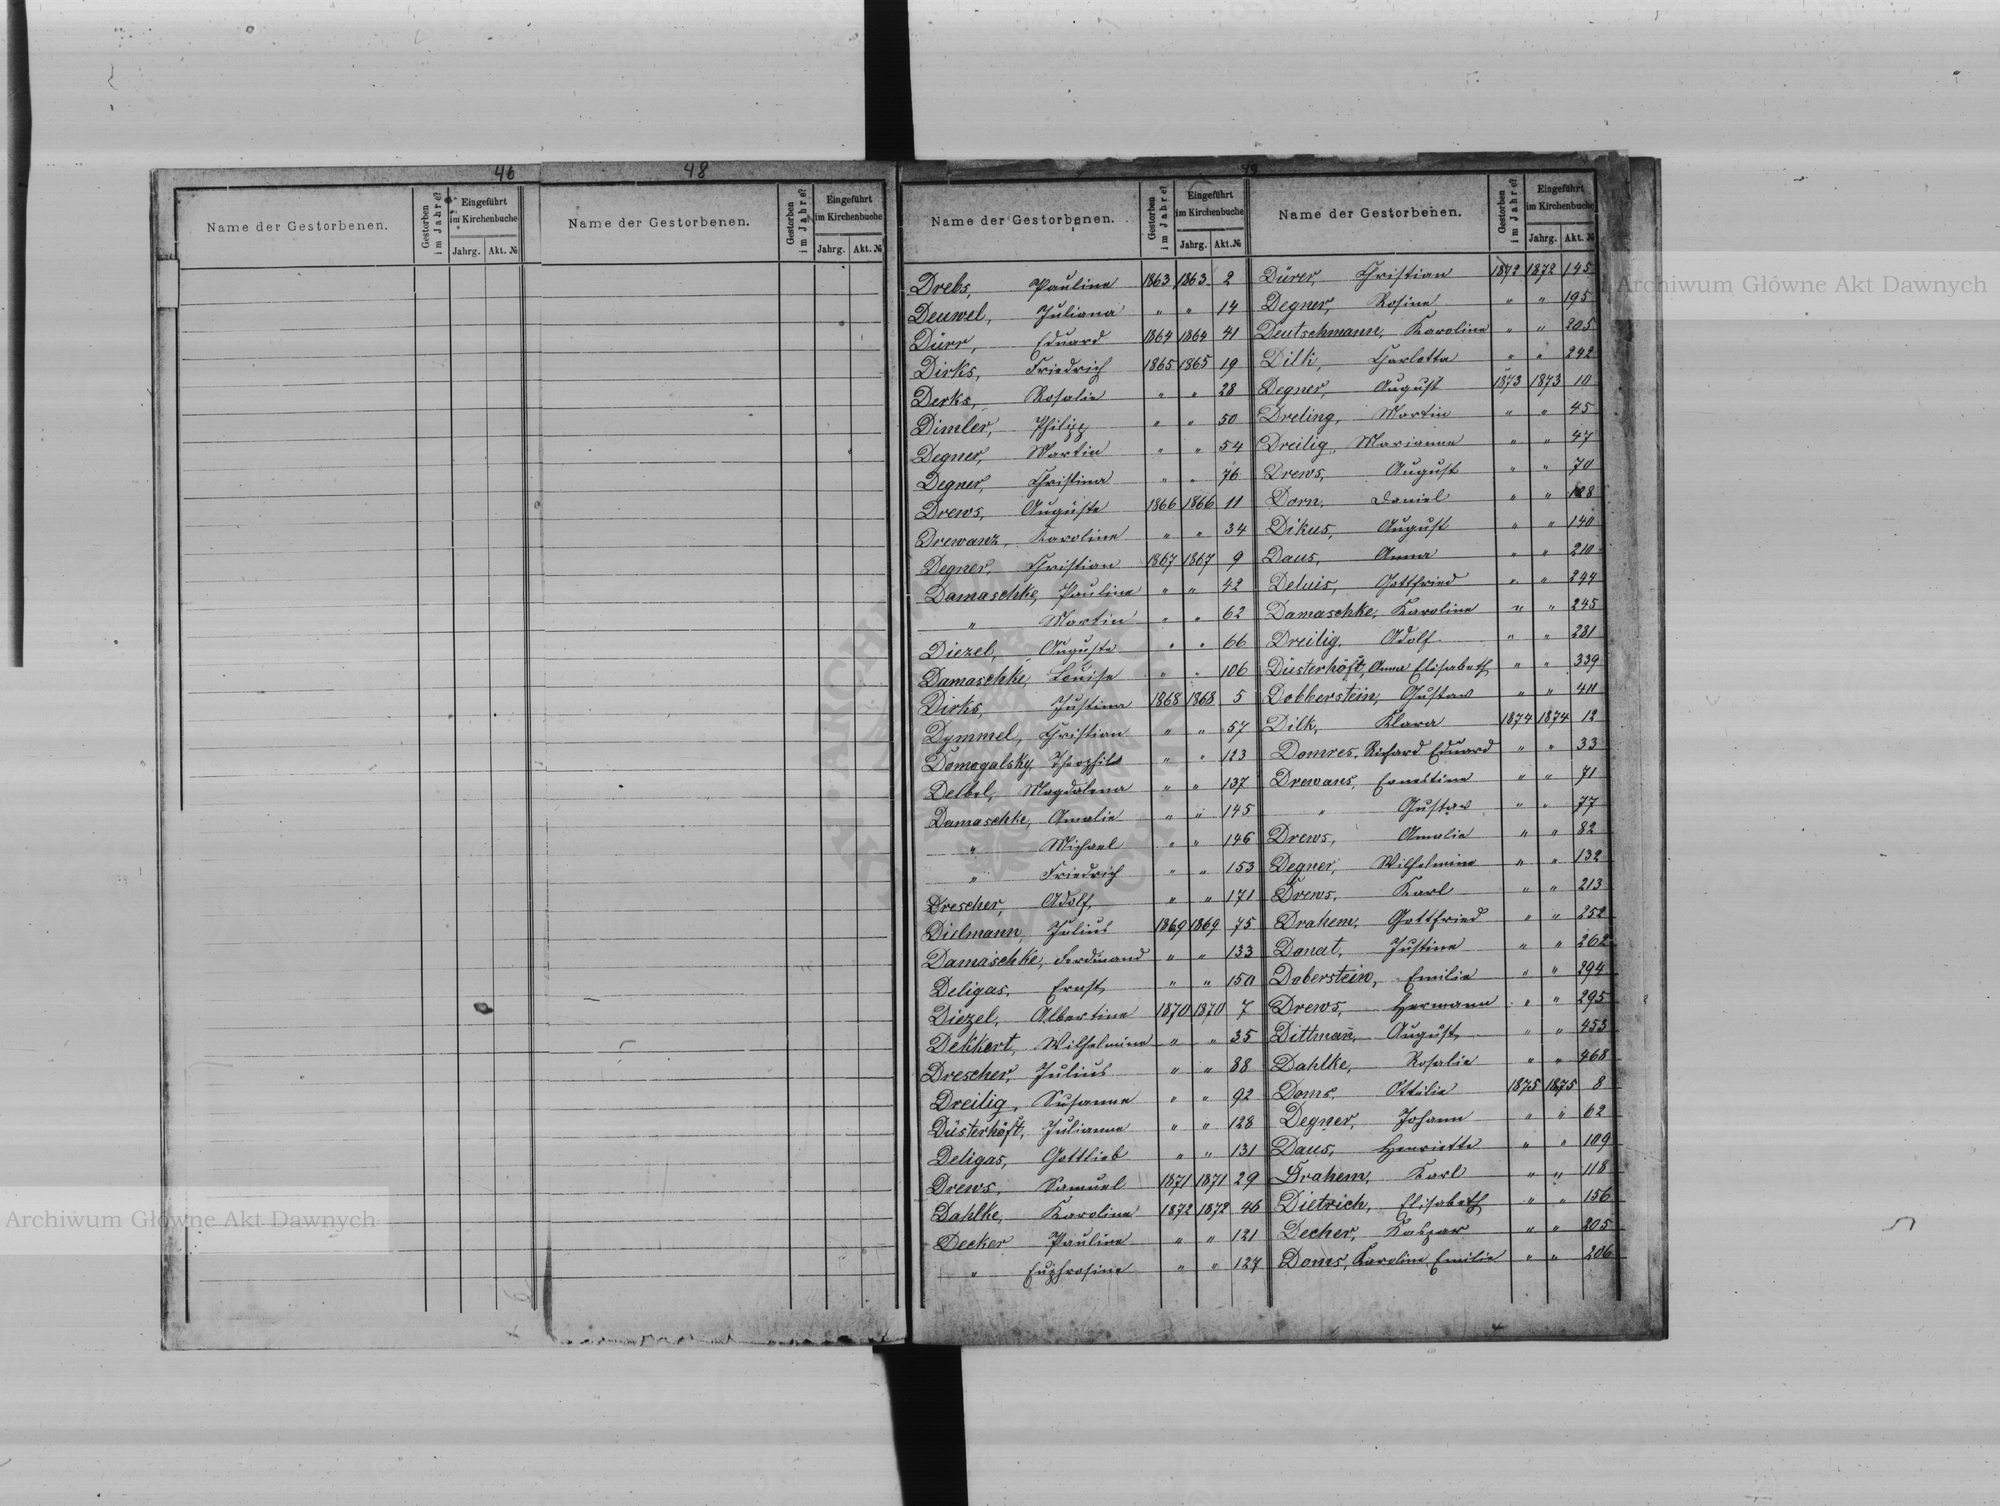 46
48
49
Name der Gestorbenen. Gestorben im Jahre? Eingeführt im Kirchenbuche Jahrg. Akt. №
Name der Gestorbenen. Gestorben im Jahre? Eingeführt im Kirchenbuche Jahrg. Akt. №
Name der Gestorbenen. Gestorben im Jahre? Eingeführt im Kirchenbuche Jahrg. Akt. №
Drebs, Pauline 1863 1863 2
Deuwel, Juliana " " 14
Dürr, Eduard 1864 1864 41
Dirks, Friedrich 1865 1865 19
Derks, Rosalie " " 28
Dimler, Philipp " " 50
Degner, Martin " " 54
Degner, Christina " " 76
Drews, Auguste 1866 1866 11
Drewanz, Karoline " " 34
Degner, Christian 1867 1867 9
Damaschke, Pauline " " 42
" Martin " " 62
Diezel, Auguste " " 66
Damaschke, Louise " " 106
Dirks, Justina 1868 1868 5
Dymmel, Christian " " 57
Domogalsky, Theophil " " 123
Delbel, Magdalena " " 137
Damaschke, Amalie " " 145
" Michael " " 146
" Friedrich " " 153
Drescher, Adolf " " 171
Dielmann, Julius 1869 1869 75
Damaschke, Ferdinand " " 133
Deligas, Ernst " " 150
Diezel, Albertine 1870 1870 7
Dekkert, Wilhelmine " " 35
Drescher, Julius " " 88
Dreilig, Susanne " " 92
Düsterhöft, Julianna " " 128
Deligas, Gottlieb " " 131
Drews, Samuel 1871 1871 29
Dahlke, Karoline 1872 1872 46
Decker Pauline " " 121
" Euphrosine " " 127
Name der Gestorbenen. Gestorben im Jahre? Eingeführt im Kirchenbuche Jahrg. Akt. №
Dürer, Christian 1872 1872 145
Degner, Rosine " " 195
Deutschmann, Karoline " " 205
Dilk, Charlotta " " 242
Degner, August 1873 1873 10
Dreling, Martin " " 45
Dreilig, Marianna " " 47
Drews, August " " 70
Dorn, Daniel " " 128
Dikus, August " " 140
Daus, Anna " " 210
Deluis, Gottfried " " 244
Damaschke, Karoline " " 245
Dreilig, Adolf " " 281
Düsterhöft, Anna Elisabeth " " 339
Dobberstein, Gustav " " 411
Dilk, Klara 1874 1874 12
Domres, Richard Eduard " " 33
Drewans, Ernestine " " 71
" Gustav " " 77
Drews, Amalie " " 82
Degner, Wilhelmine " " 132
Drews, Karl " " 213
Drahem, Gottfried " " 252
Donat, Justine " " 262
Doberstein, Emilie " " 294
Drews, Hermann " " 295
Dittmañ, August " " 453
Dahlke, Rosalie " " 468
Doms, Ottilie 1875 1875 8
Degner, Johann " " 62
Daus, Henriette " " 109
Drahem, Karl " " 118
Dietrich, Elisabeth " " 156
Decher, Kaspar " " 205
Doms, Karoline Emilie " " 206
Archiwum Główne Akt Dawnych
Archiwum Główne Akt Dawnych